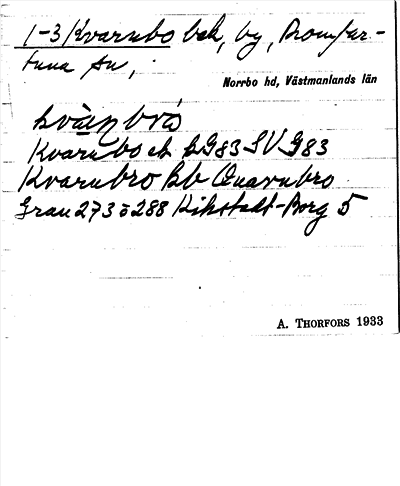 1-3/Kvarnbo bck, by, Romfar-
tuna sn,
Norrbo hd, Västmanlands län
Kvarnbo ek LG83 SV G83
Kvarnbro Kb Quarnbro
Gran 273 ö 288 Kihstedt-Borg 5
A. THORFORS 1933